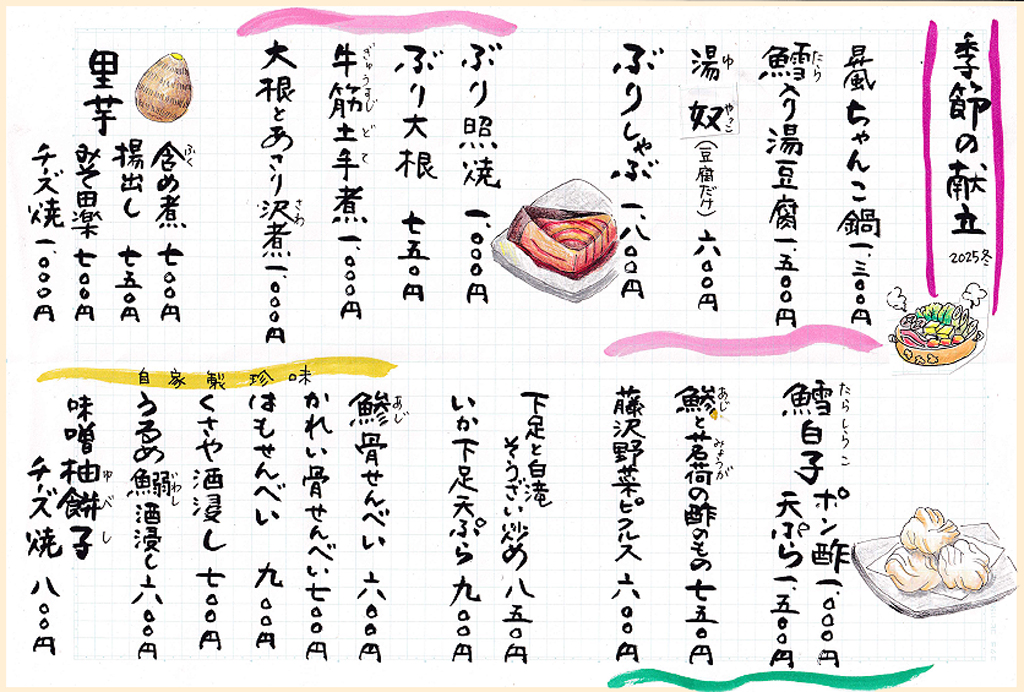 季節の献立
2025冬
昇風ちゃんこ鍋 一、三〇〇円
鱈入り湯豆腐 一、五〇〇円
たら
湯奴(豆腐だけ) 六〇〇円
ゆ やっこ
ぶりしゃぶ 一、八〇〇円
ぶり照焼 一、〇〇〇円
ぶり大根 七五〇円
牛筋土手煮 一、〇〇〇円
ぎゅうすじ どて
大根とあさり沢煮 一、〇〇〇円
さわ
里芋
含め煮 七〇〇円
ふく
揚出し 七五〇円
みそ田楽 七〇〇円
チーズ焼 一、〇〇〇円
鱈白子
たらしらこ
ポン酢 一、〇〇〇円
天ぷら 一、五〇〇円
鯵と茗荷の酢のもの 七五〇円
あじ みょうが
藤沢野菜ピクルス 六〇〇円
下足と白滝
そうざい炒め 八五〇円
いか下足天ぷら 九〇〇円
自家製珍味
鯵骨せんべい 六〇〇円
あじ
かれい骨せんべい 七〇〇円
はもせんべい 九〇〇円
くさや酒浸し 七〇〇円
うるめ鰯酒浸し 六〇〇円
いわし
味噌柚餅子
ゆべし
チーズ焼 八〇〇円